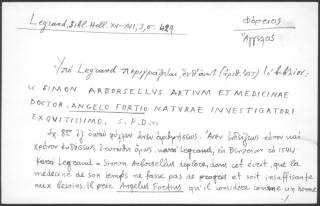 Legrand, Bibl. Hell. XV-XVI, 3, σ. 429
Φόρτιος
Ἄγγελος
Ὑπὸ Legrand περιγράφεται, ἐνθ' ἀνωτ. βιβλίον:
« SIMON ARBORSELLUS ARTIUM ET MEDICINAE
DOCTOR, ANGELO FORTIO NATURAE INVESTIGATORI
EXQUITISSIMO, S. P. D. »
Ἔχ. 88 ἄνευ ἀριθμήσεως. Ἄνευ ἐνδείξεως τόπου καὶ
χρόνου ἐκδόσεως κατὰ Legrand, ἐν Βενετίᾳ τὸ 1541
κατὰ Legrand « Simon Arborsellus déplore, dans cet écrit, que la
médecine de son temps ne fasse pas de progrès et soit insuffisante
aux besoins. Il prie Angelus Fortius, qu'il considère comme un homme